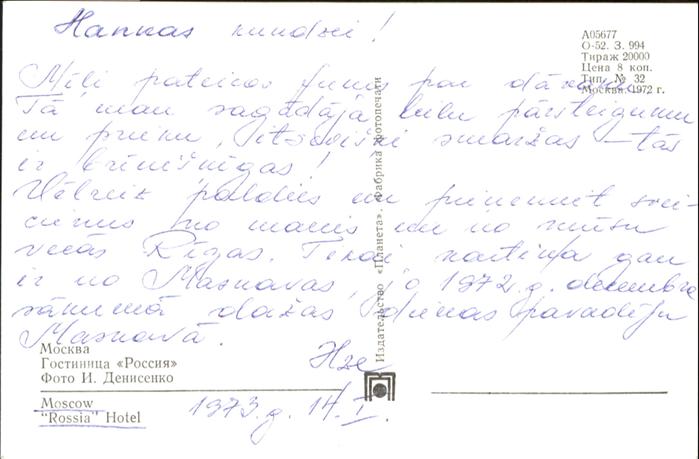 Hannas kundzei!
Mīļi pateicos Jums par dāvanu.
Tā man sagādāja lielu pārsteigumu
un prieku, sevišķi smaržas – tās
ir brīnišķīgas!
Vēlreiz paldies un pieņemiet svei-
cienus no manis un no mūsu
vecās Rīgas. kartiņa gan
ir no Maskavas, jo 1972.g. decembra
sākumā dažas dienas pavadīju
Maskavā.
1973.g. 14.I.
А05677
О-52. З. 994
Тираж 20000
Цена 8 коп.
Тип. № 32
Москва. 1972 г.
Издательство «Планета». Фабрика фотопечати
Москва
Гостиница «Россия»
Фото И. Денисенко
Moscow
"Rossia" Hotel